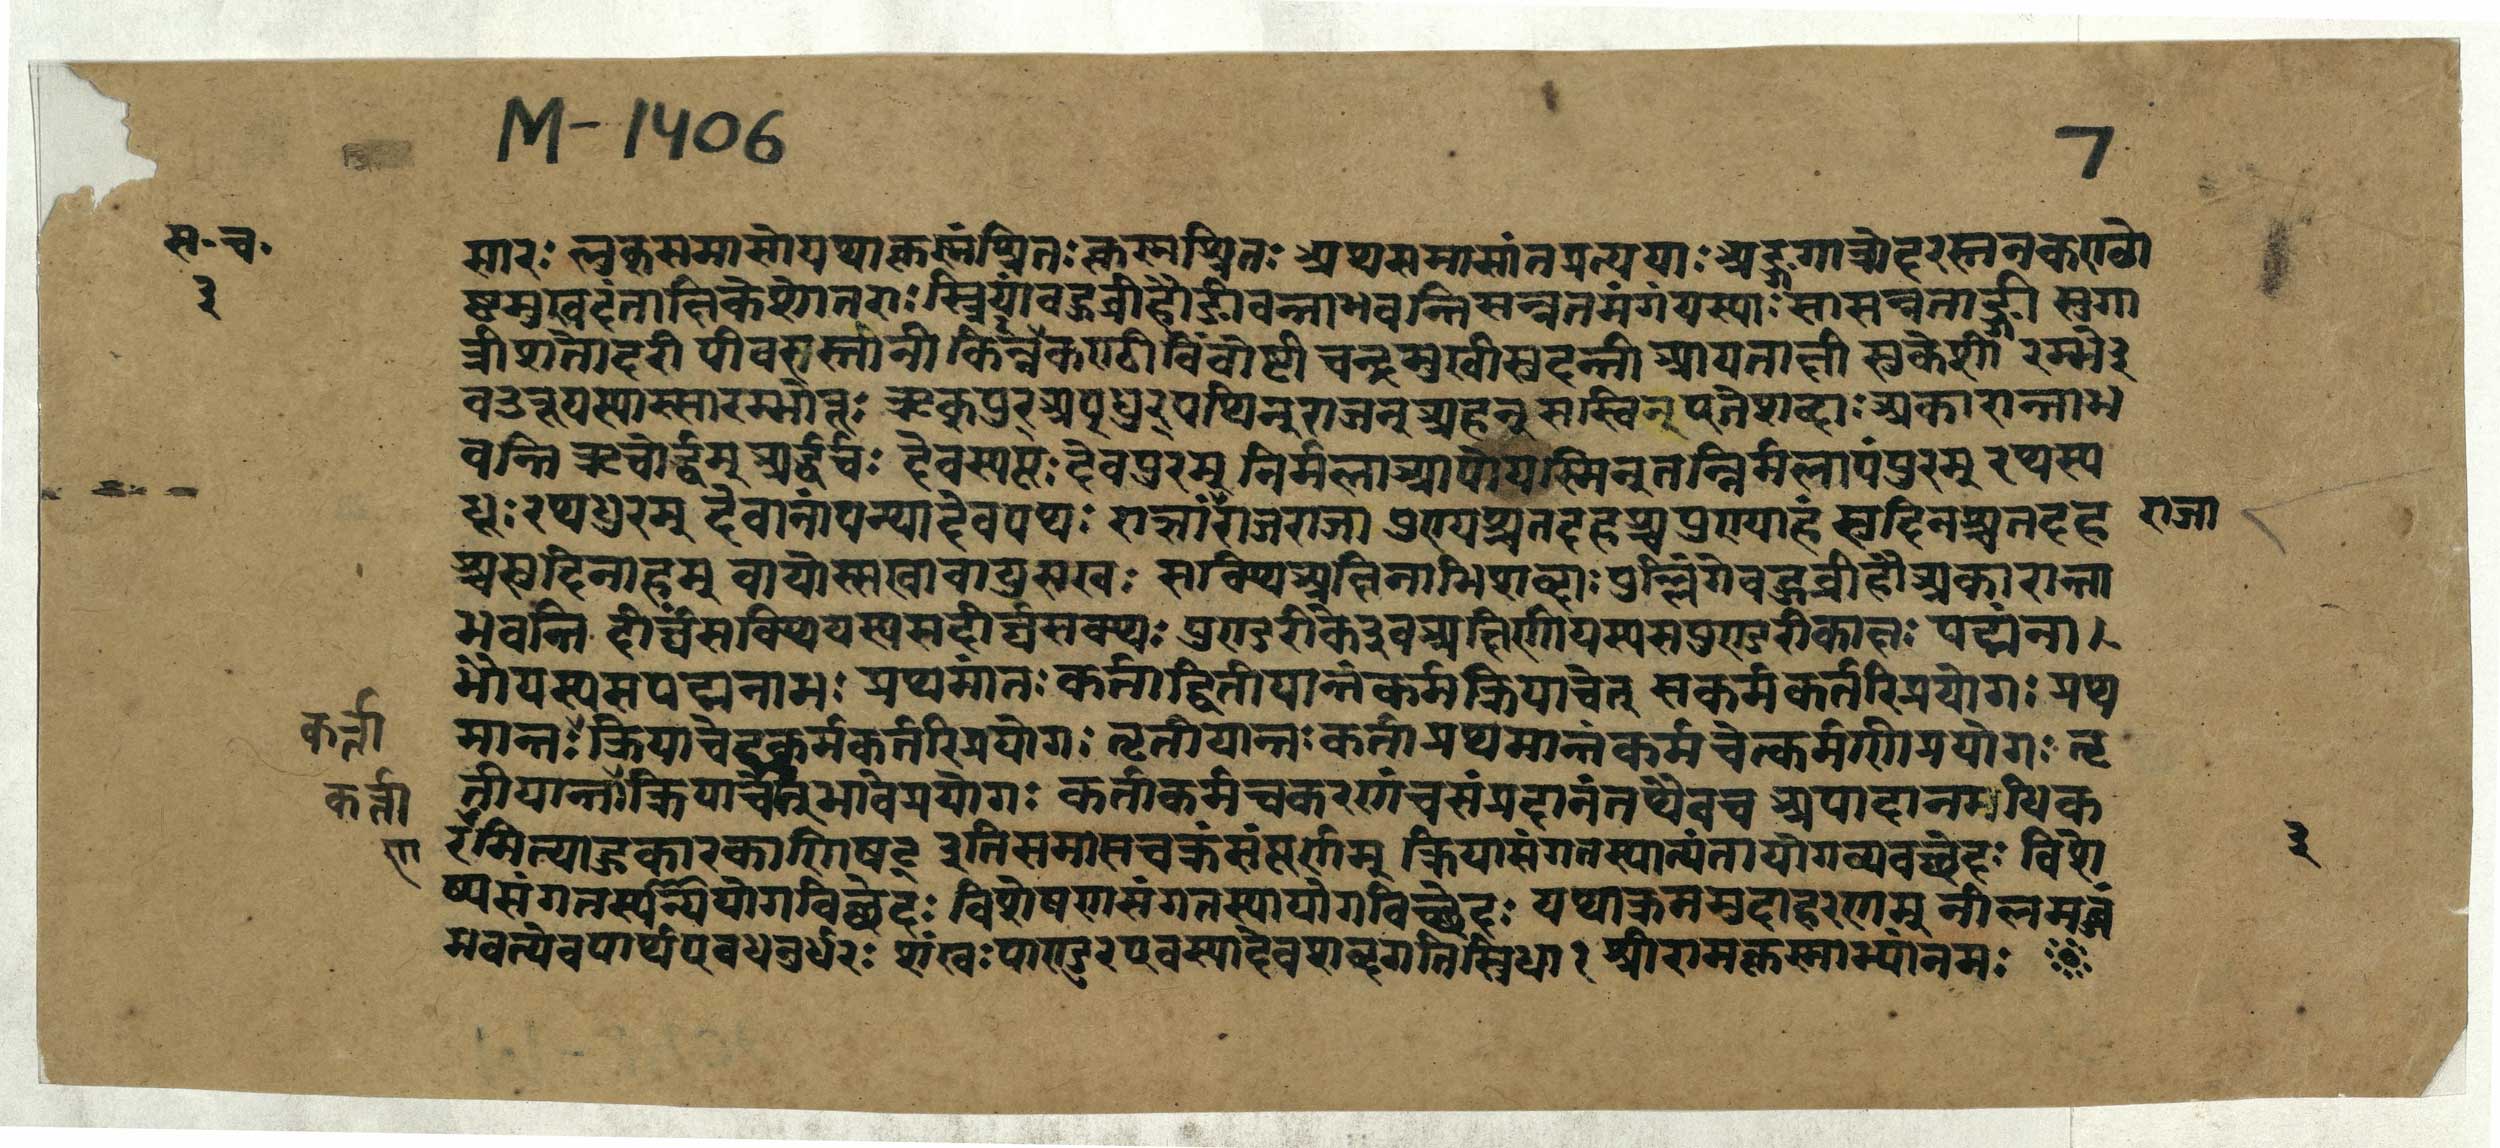 M-1406
7
स-च.
३
सारः लुक्समासो यथा कृष्णंश्रितः कृष्णश्रितः अथ समासांतप्रत्ययाः अङ्गगात्रोदरस्तनकण्ठो
ष्टमुखदंताक्षिकेशेतराः स्त्रियां वहुव्रीहौ ङीवन्ता भवन्ति सन्नतमंगं यस्याः सा सन्नताङ्गी सुगा
त्री शातोदरी पीवरस्तनी किन्नरकण्ठी विंवोष्टी चन्द्रमुखी सुदन्ती आयताक्षी सुकेशी रम्भे इ
व उरू यस्यास्सा रम्भोरूः ऋक् पुर् अप् धुर् पथिन् राजन् अहन् सखिन् एते शव्दाः अकारान्ता भ
वन्ति ऋचोर्द्धम् अर्द्धर्चः देवस्य पूः देवपुरम् निर्मला आपो यस्मिन् तन्निर्मलापं पुरम् रथस्य
धूः रथधुरम् देवानां पन्था देवपथः राज्ञां राजराजा पुण्यञ्च तदहश्च पुण्याहं सुदिनञ्च तदह
श्च सुदिनाहम् वायोस्सखा वायुसखः सक्थि अक्षि नाभि शव्दाः पुल्लिंगे वहुव्रीहौ अकारान्ता
भवन्ति दीर्घं सक्थि यस्य स दीर्घसक्थः पुण्डरीके इव अक्षिणी यस्य स पुण्डरीकाक्षः पद्मं ना
भौ यस्य स पद्मनाभः प्रथमांतः कर्ता द्वितीयान्तं कर्म क्रिया चेत् सकर्मकर्तरिप्रयोगः प्रथ
मान्तः क्रिया चेदकर्मकर्तरिप्रयोगः तृतीयान्तः कर्ता प्रथमान्तं कर्म चेत्कर्मणीप्रयोगः तृ
तीयान्तः क्रिया चेत् भावेप्रयोगः कर्ता कर्म च करणं च संप्रदानं तथैव च अपादानमधिक
रमित्याहु कारकाणि षट् इति समासचक्रं संपूर्णम् क्रियासंगतस्यात्यंतायोगव्यवछेदः विशे
ष्यसंगतस्यान्ययोगविछेदः विशेषणसंगतस्यायोगविछेदः यथाक्रममुदाहरणम् नीलमब्जं
भवत्येव पार्थ एव धनुर्धरः शंखः पाण्डर एव स्यादेवशव्दगतिस्त्रिधा १ श्रीरामकृष्णाभ्यां नमः
राजा
कर्ता
कर्ता
ण
३